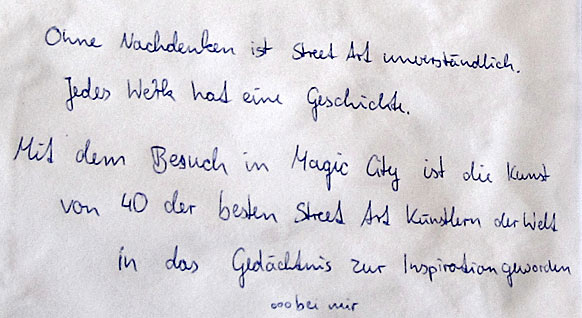 Ohne Nachdenken ist Street Art unverständlich.
Jedes Werk hat eine Geschichte.
Mit dem Besuch in Magic City ist die Kunst
von 40 der besten Street Art Künstlern der Welt
in das Gedächtnis zur Inspiration geworden
...bei mir